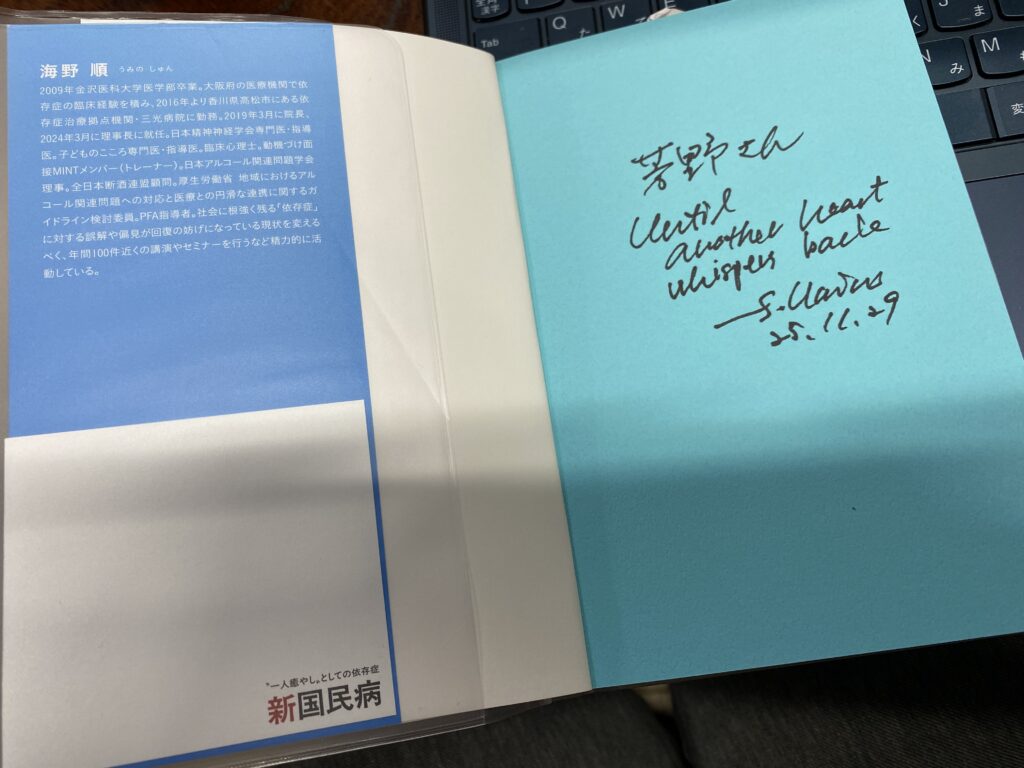 海野 順 うみの しゅん
2009年金沢医科大学医学部卒業。大阪府の医療機関で依
存症の臨床経験を積み、2016年より香川県高松市にある依
存症治療拠点機関・三光病院に勤務。2019年3月に院長、
2024年3月に理事長に就任。日本精神神経学会専門医・指導
医。子どものこころ専門医・指導医。臨床心理士。動機づけ面
接MINTメンバー（トレーナー）。日本アルコール関連問題学会
理事。全日本断酒連盟顧問。厚生労働省 地域におけるアル
コール関連問題への対応と医療との円滑な連携に関するガ
イドライン検討委員。PFA指導者。社会に根強く残る「依存症」
に対する誤解や偏見が回復の妨げになっている現状を変える
べく、年間100件近くの講演やセミナーを行うなど精力的に活
動している。
“一人癒やし”としての依存症
新国民病
野さん
Until
another heart
whispers back
25.11.29
Tab
Q
W
た
て
J
ま
N
み
M
も
変